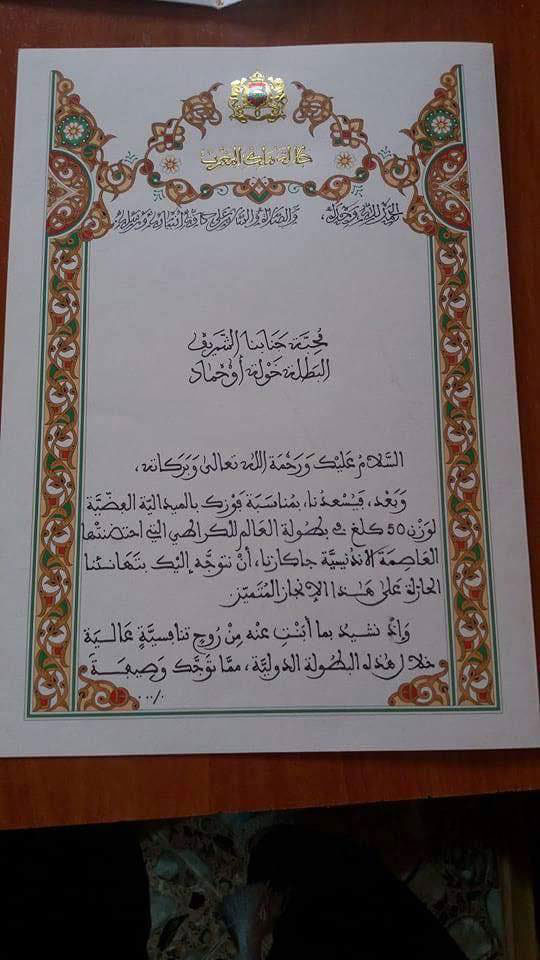 جلالة ملك المغرب
الحمد لله وحده، والصلاة والسلام على
محبة جنابنا الشريف
البطلة خولة أوحماد
السَّلامُ عَلَيْك وَرَحْمَة اللَّه تعالى وَبَرَكاته،
وَبَعْد، فَيُسْعدُنا، بمُناسَبَة فَوْزك بالميدالية الفِضّيَّة
لوَزْن 50 كلغ في بطولة العالم للكراطي التي احتضنتْها
العَاصِمَة الأندنيسيَّة جاكارتا، أنْ نتوَجَّه إليْك بتَهَانئنا
الحارّة عَلى هَذا الإنجاز المُتَميّز.
وَإذ نشيدُ بما أبَنْتِ عنْه مِنْ رُوحٍ تنافسيَّةٍ عَالية
خلال هذه البطولة الدوليَّة، ممَّا تَوَّجَك وَصيفَةً
٠٠٠/٠